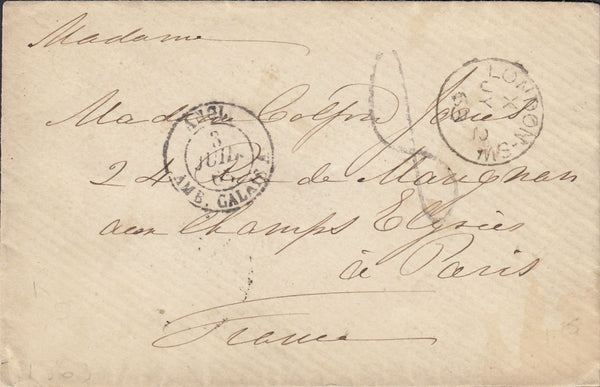 Madame
Madame Jones
24 Rue de Marignan
aux Champs Elysées
à Paris
France
ANGL.
3
JUIL
AMB. CALAIS
LONDON-SW
X
JY 2
69